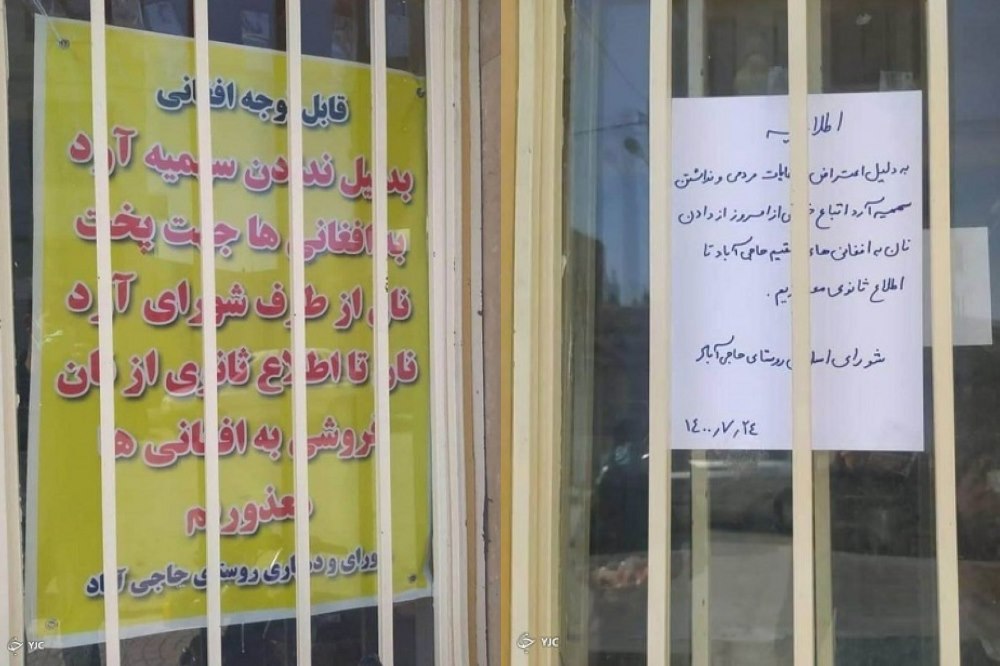 قابل توجه افغانی
بدلیل ندادن سهمیه آرد
به افغانی ها جهت پخت
نان از طرف شورای آرد
نان تا اطلاع ثانوی از نان
فروشی به افغانی ها
معذوریم
شورای و دهیاری روستای حاجی آباد
YJC
اطلاعیه
به دلیل اعتراض شکایات مردمی و نداشتن
سهمیه آرد اتباع خارجی از امروز از دادن
نان به افغانی های مقیم حاجی آباد تا
اطلاع ثانوی معذوریم .
شورای اسلامی روستای حاجی آباد
۱۴۰۰٫۷٫۲۴
YJC